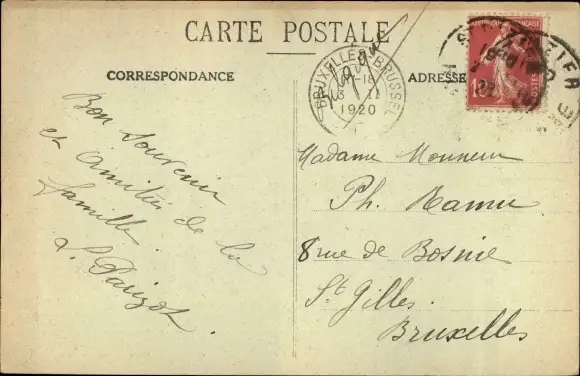 CARTE POSTALE
CORRESPONDANCE
ADRESSE
BRUXELLES-BRUSSEL
1920
10
POSTES
Bon souvenir
et amitiés de la
famille
L. Parizot
Madame Monsieur
Ph. Ramu
8 rue de Bosnie
St Gilles
Bruxelles